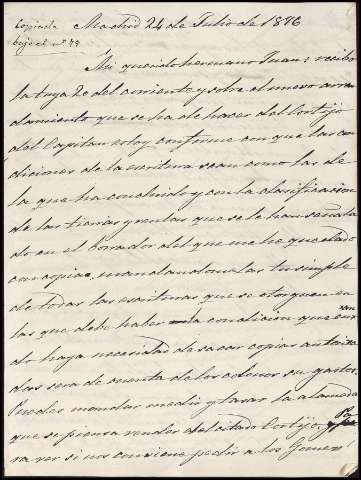 Copiada
bajo el nº 49
Madrid 24 de Julio de 1876
Mi querido hermano Juan: recibo
la tuya 20 del corriente y sobre el nuevo arren
damiento que se ha de hacer del Cortijo
del Capitan estoy conforme con que las con
diciones de la escritura sean como las de
la que ha concluido y con la clasificacion
de las tierras y rentas que se le han señala
do en el borrador del que me he quedado
con copia, mandandome las tu simple
de todas las escrituras que se otorguen en
las que debe haber la condicion que cuan
do haya necesidad de sacar copias autoriza
das sera de cuenta de los colonos su gasto.
Puedes mandar medir y tasar la alameda
que se piensa vender del citado Cortijo, pa
ra ver si nos conviene pedir a los